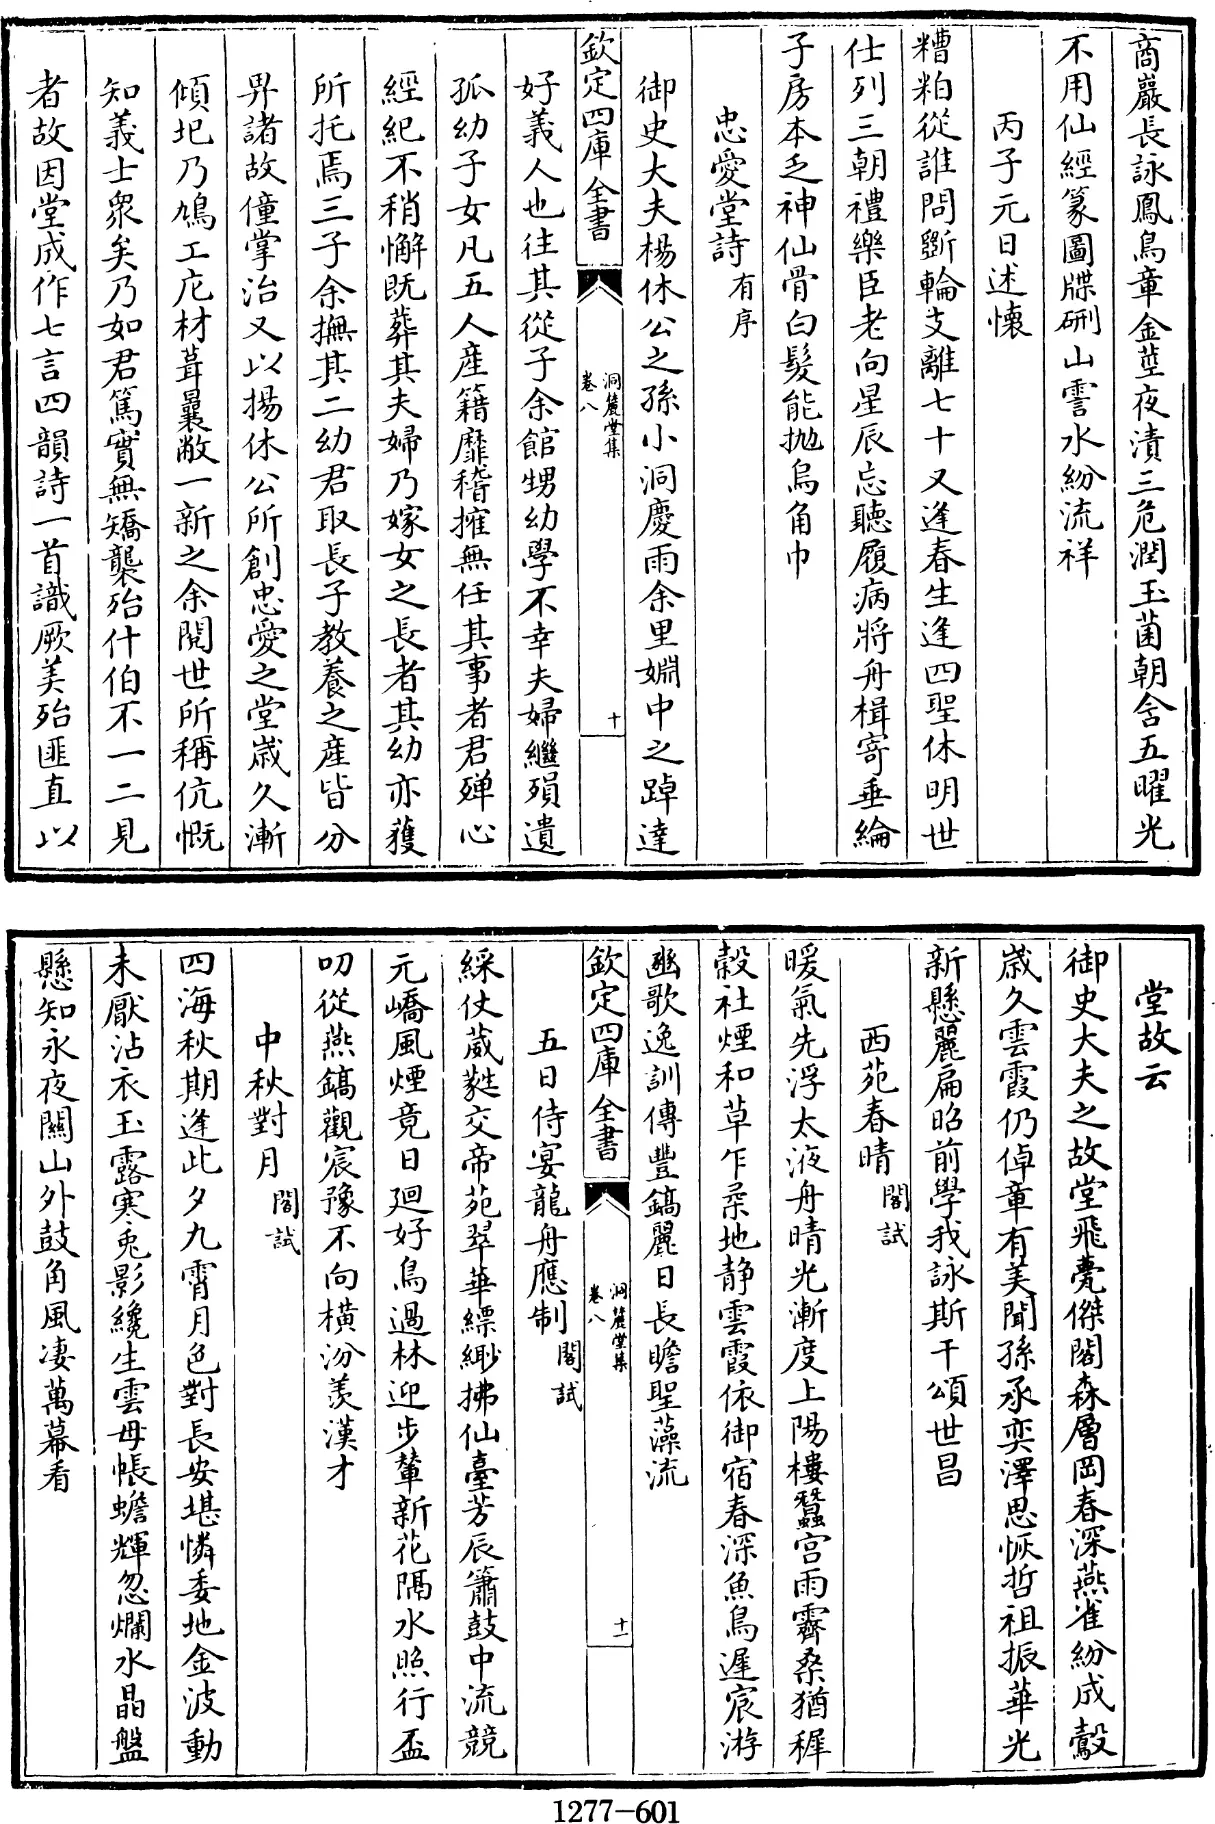 商巖長詠鳳鳥章金莖夜漬三危潤玉菌朝含五曜光
不用仙經篆圖牒硎山雲水紛流祥
丙子元日述懷
糟粕從誰問斲輪支離七十又逢春生逢四聖休明世
仕列三朝禮樂臣老向星辰忘聽履病將舟楫寄垂綸
子房本乏神仙骨白髮能拋烏角巾
忠愛堂詩有序
御史大夫楊休公之孫小洞慶雨余里姻中之踔達
欽定四庫全書
洞麓堂集
卷八
十
好義人也往其從子余館甥幼學不幸夫婦繼殞遺
孤幼子女凡五人產籍靡稽擁無任其事者君殫心
經紀不稍懈既葬其夫婦乃嫁女之長者其幼亦獲
所托焉三子余撫其二幼君取長子教養之產皆分
畀諸故僮掌治又以揚休公所創忠愛之堂歲久漸
傾圯乃鳩工庀材葺曩敝一新之余閱世所稱伉慨
知義士衆矣乃如君篤實無矯襲殆什伯不一二見
者故因堂成作七言四韻詩一首識厥美殆匪直以
堂故云
御史大夫之故堂飛甍傑閣森層岡春深燕雀紛成鷇
歲久雲霞仍倬章有美聞孫承奕澤思恢哲祖振華光
新懸麗扁昭前學我詠斯干頌世昌
西苑春晴閣試
暖氣先浮太液舟晴光漸度上陽樓蠶宮雨霽桑猶穉
穀社煙和草乍柔地靜雲霞依御宿春深魚鳥遲宸游
豳歌逸訓傳豐鎬麗日長瞻聖藻流
欽定四庫全書
洞麓堂集
卷八
十一
五日侍宴龍舟應制閣試
綵仗葳蕤交帝苑翠華縹緲拂仙臺芳辰簫鼓中流競
元嶠風煙竟日迴好鳥過林迎步輦新花隔水照行盃
叨從燕鎬觀宸豫不向橫汾羨漢才
中秋對月閣試
四海秋期逢此夕九霄月色對長安堪憐委地金波動
未厭沾衣玉露寒兎影纔生雲母帳蟾輝忽爛水晶盤
懸知永夜關山外鼓角風凄萬幕看
1277—601